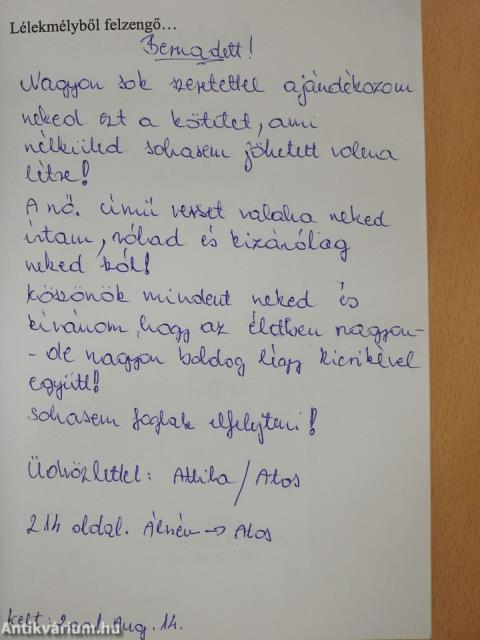 Lélekmélyből felzengő…
Bernadett!
Nagyon sok szeretettel ajándékozom
neked ezt a kötetet, ami
nélküled sohasem jöhetett volna
létre!
A nő. című verset valaha neked
írtam, rólad és kizárólag
neked szól!
Köszönök mindent neked és
kívánom, hogy az életben nagyon-
- de nagyon boldog légy kicsikével
együtt!
Sohasem foglak elfelejteni!
Üdvözlettel: Attila/Atos
214 oldal. Álnév → Atos
Kelt: 2001. Aug. 14.
Antikvárium.hu